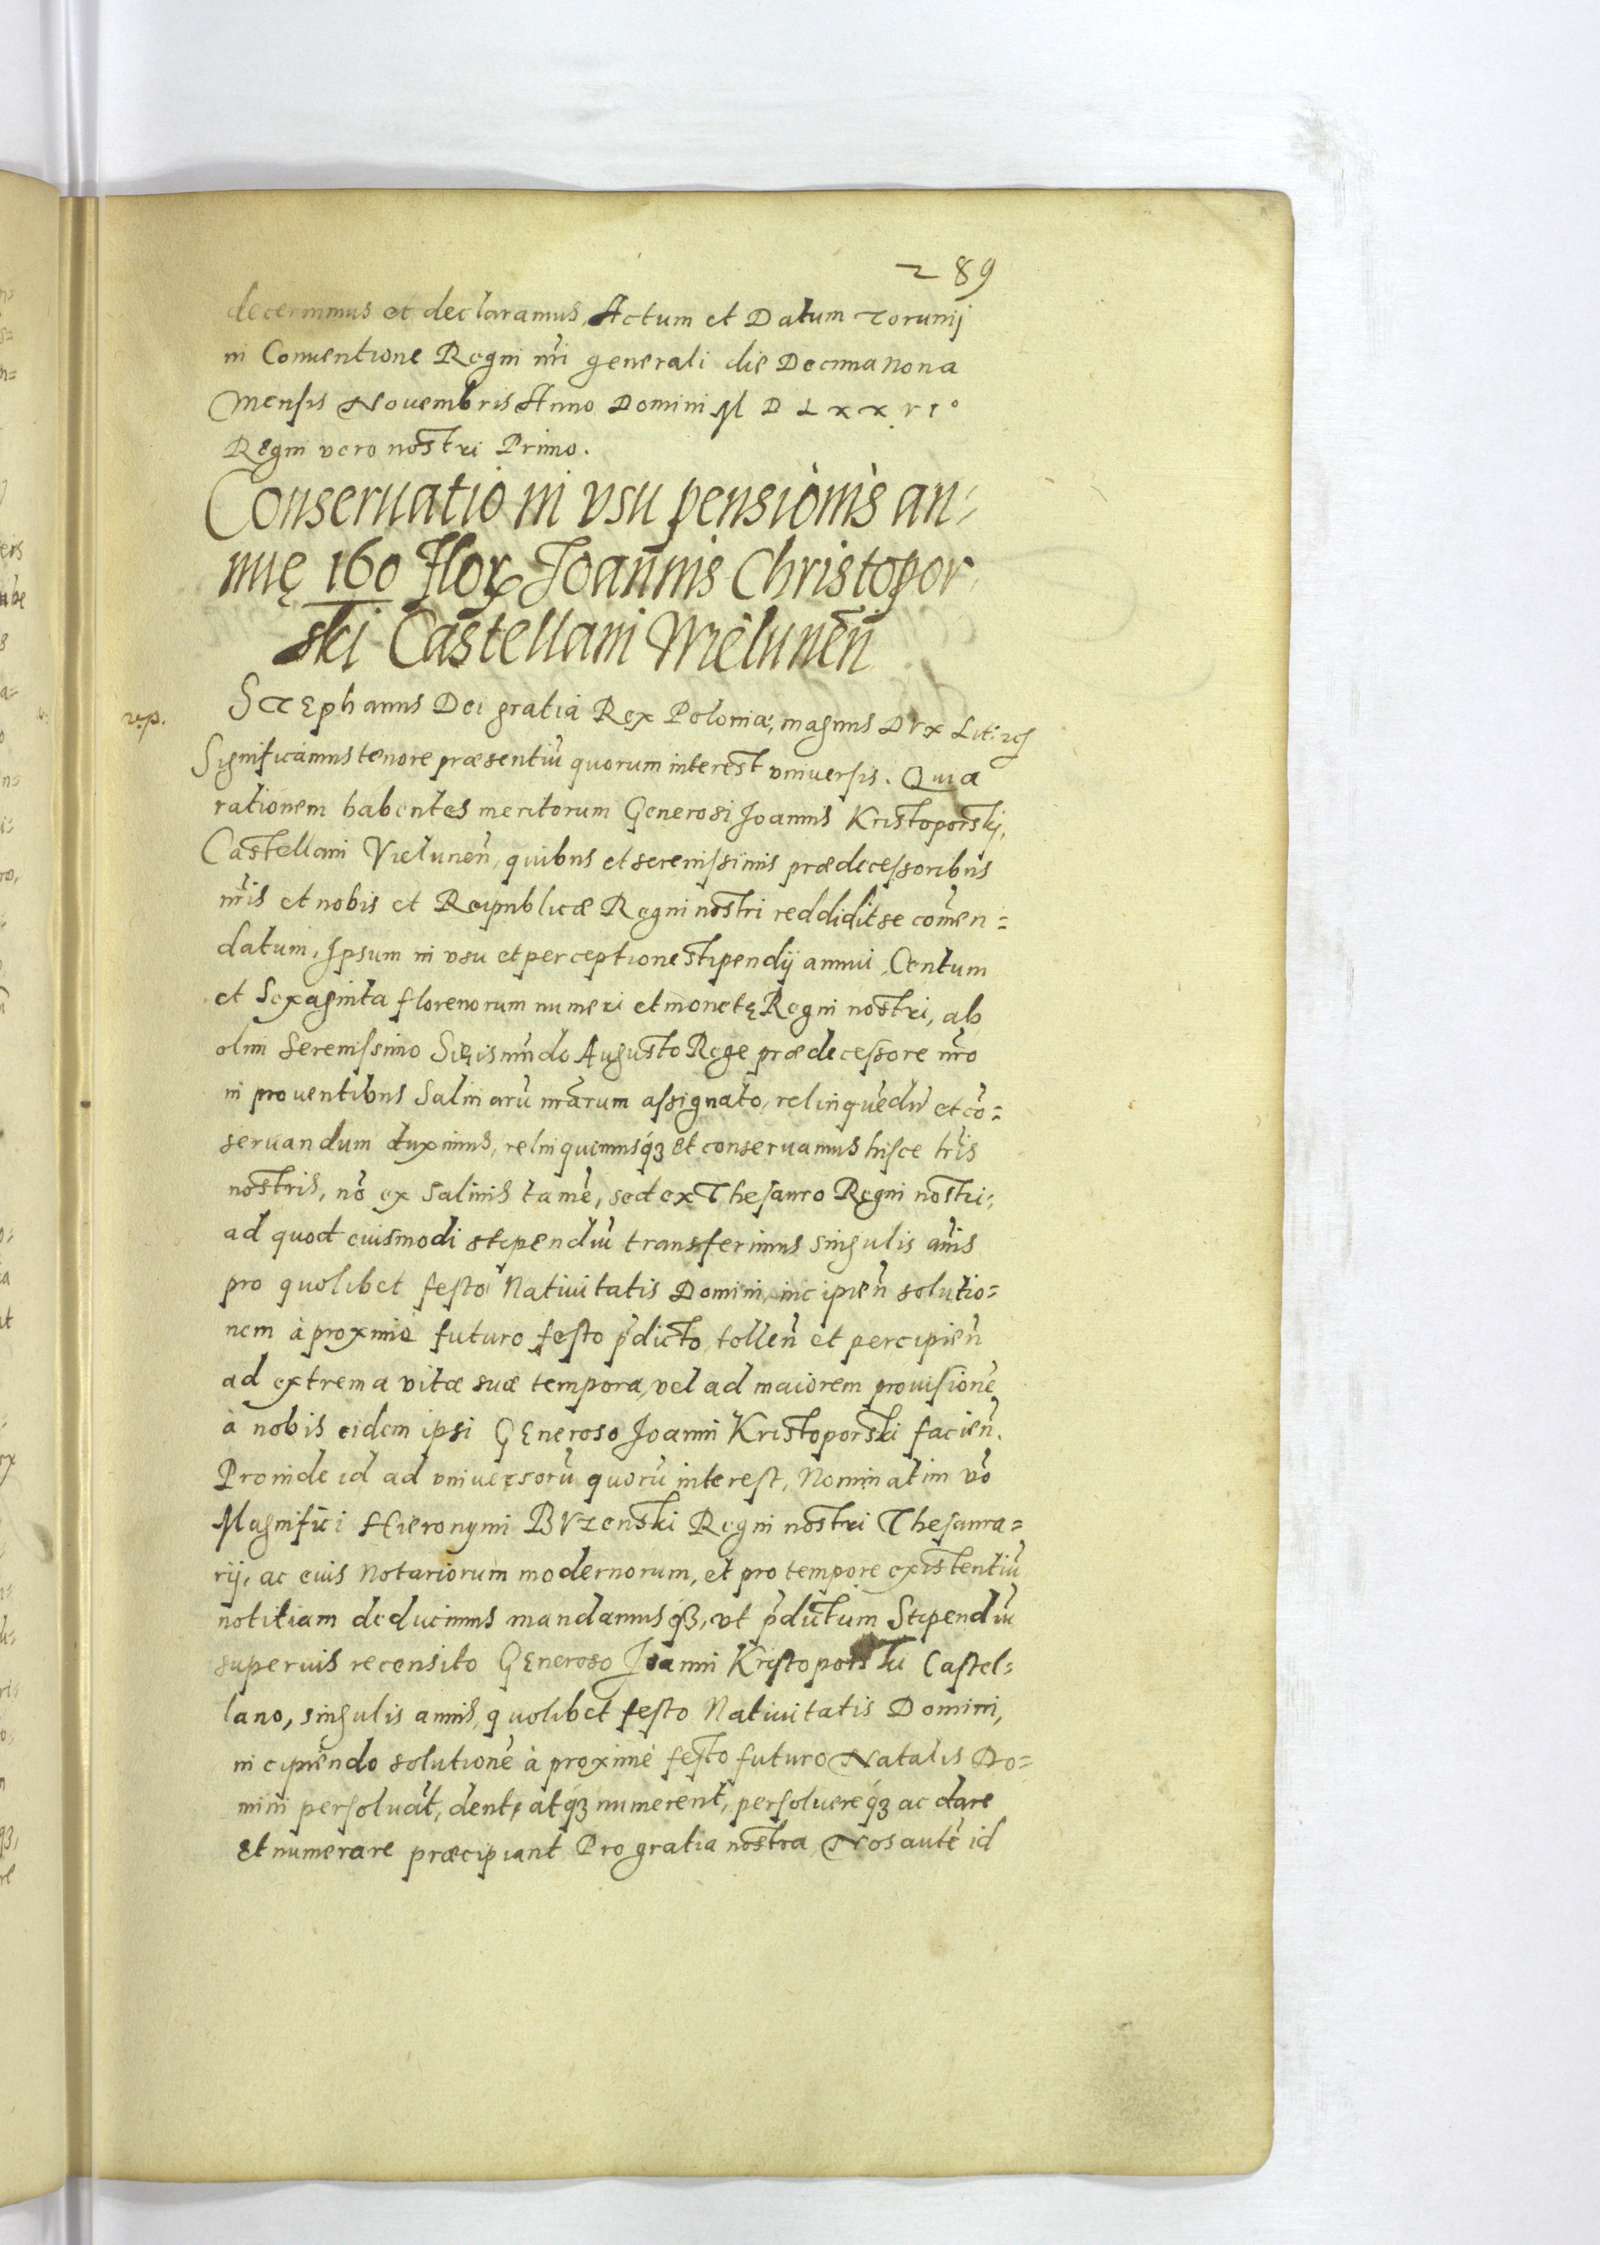 289
decernimus et declaramus, Actum et Datum Torunij
in Conuentione Regni nri generali die Decima nona
Mensis Nouembris Anno Domini M D L x x v i °
Regni vero nostri Primo.
Conseruatio in vsu pensionis an=
nuę 160 Flor Joannis Christopor
ski Castellani Wielunen
Stephanus Dei gratia Rex Poloniæ, magnus Dvx Lit:
Significamus tenore præsentiũ quorum interest vniuersis. Quia
rationem habentes meritorum Generosi Joannis Kristoporskj,
Castellani Vielunen, quibus et serenissimis prædecessoribus
nris et nobis et Reipublicæ Regni nostri reddidit se comen=
datum, Ipsum in vsu et perceptione stipendij annui Centum
et Sexaginta florenorum numeri et monetę Regni nostri, ab
olim Serenissimo Sigismũdo Augusto Rege prædecessore nro
in prouentibus Salinarũ nrarum assignato, relinquẽdũ et cõ=
seruandum duximus, relinquimusq́ȝ et conseruamus hisce lris
nostris, nõ ex Salinis tamẽ, sed ex Thesauro Regni nostri;
ad quod euismodi stipendiũ transferimus singulis annis
pro quolibet festo Natiuitatis Domini, incipien solutio=
nem à proximè futuro festo pdicto, tollen et percipien
ad extrema vitæ suæ tempora, vel ad maiorem prouisionẽ
à nobis eidem ipsi Generoso Joanni Kristoporski facien.
Proinde id ad vniuersorũ quorũ interest, Nominatim vo
Magnifici Hieronymi Bvzenski Regni nostri Thesaura=
rij, ac euis Notariorum modernorum, et pro tempore existentiũ
notitiam deducimus mandamusq́ȝ, vt pdictum Stipendiũ
superuis recensito Generoso Joanni Kristoporski Castel=
lano, singulis annis, quolibet festo Natiuitatis Domini,
incipiendo solutionẽ à proximè festo futuro Natalis Do=
mini persoluãt, dent, atq́ȝ numerent, persoluereq́ȝ ac dare
et numerare præcipiant Pro gratia nostra, Nos autẽ id